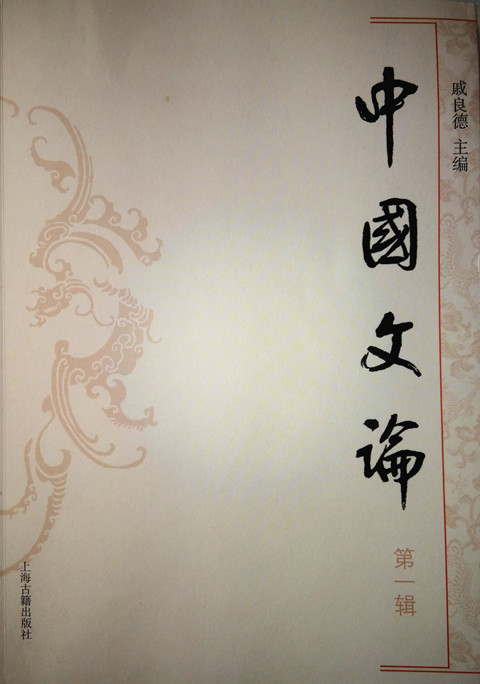 戚良德 主编
中國文論
第一辑
上海古籍出版社